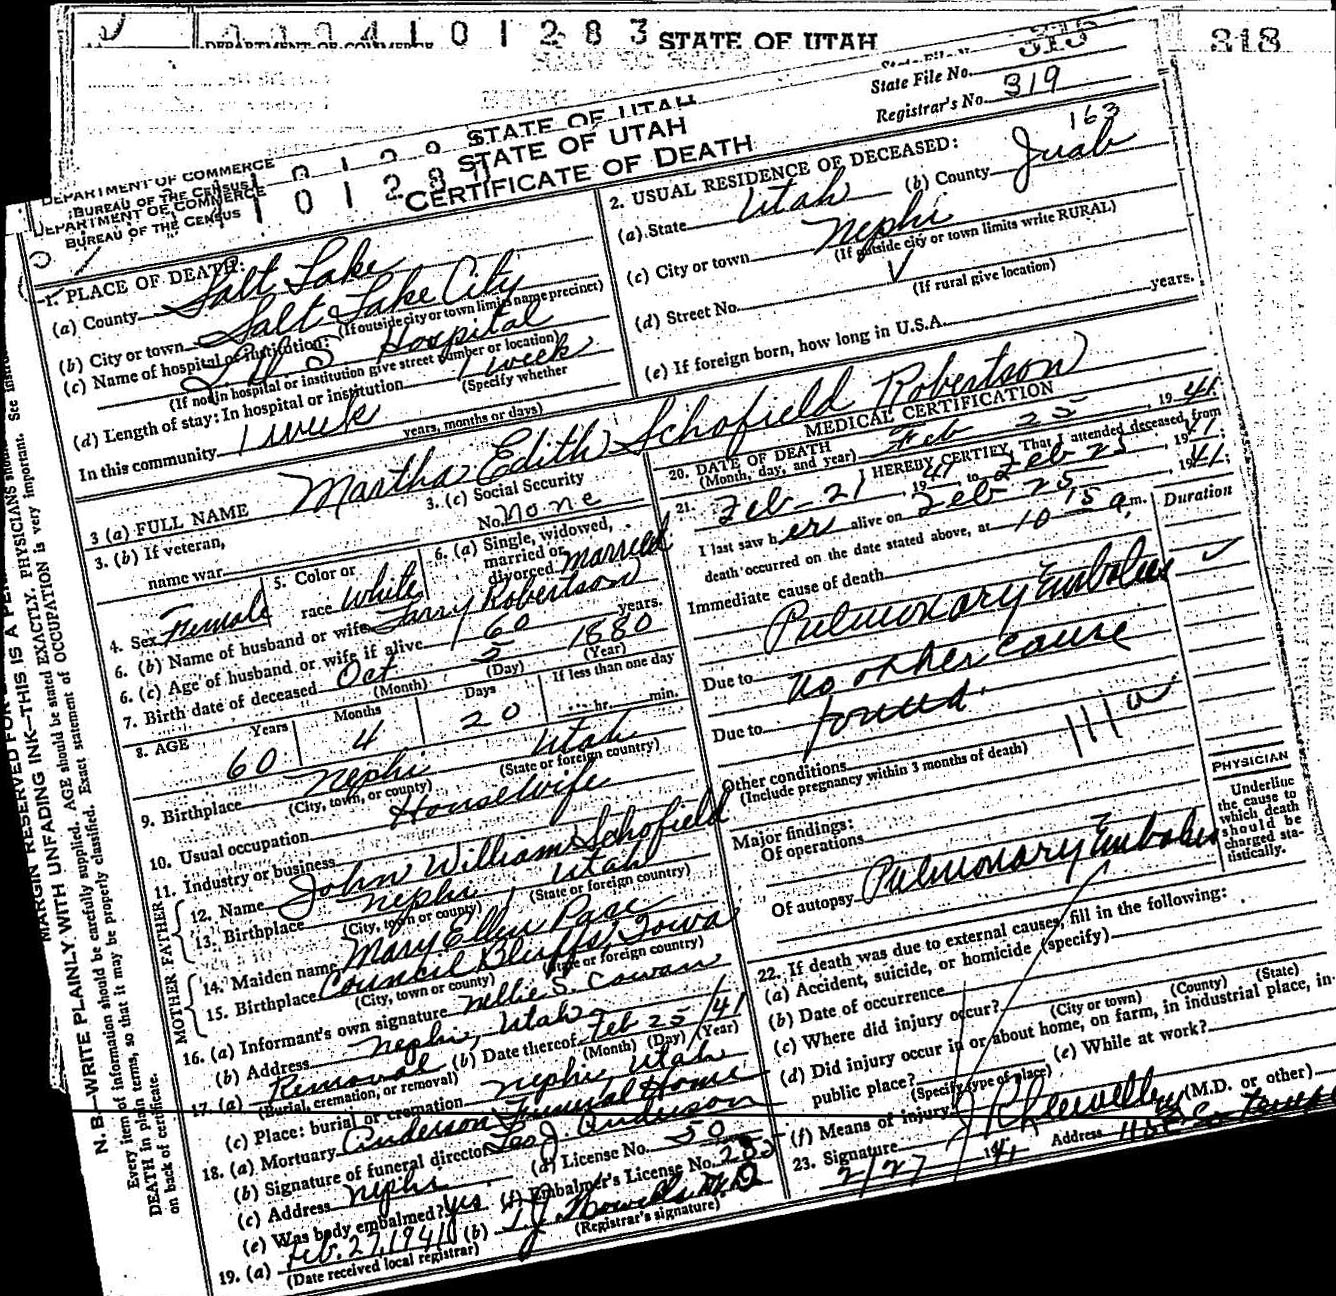 0 0 0 4 1 0 1 2 8 3 STATE OF UTAH 318
DEPARTMENT OF COMMERCE
STATE OF UTAH
State File No.
Registrar's No. 319
163
DEPARTMENT OF COMMERCE
BUREAU OF THE CENSUS
DEPARTMENT OF COMMERCE
BUREAU OF THE CENSUS
STATE OF UTAH
CERTIFICATE OF DEATH
1. PLACE OF DEATH:
(a) County Salt Lake
(b) City or town Salt Lake City
(If outside city or town limits name precinct)
(c) Name of hospital or institution: L D S Hospital
(If not in hospital or institution give street number or location)
(d) Length of stay: In hospital or institution 1 week
(Specify whether
In this community 1 week
years, months or days)
2. USUAL RESIDENCE OF DECEASED:
(a) State Utah (b) County Juab
(c) City or town Nephi
(If outside city or town limits write RURAL)
(d) Street No.
(If rural give location)
(e) If foreign born, how long in U.S.A. years.
3 (a) FULL NAME Martha Edith Schofield Robertson
3. (b) If veteran,
name war
3. (c) Social Security
No. None
4. Sex Female
5. Color or
race White
6. (a) Single, widowed,
married or
divorced Married
6. (b) Name of husband or wife Robertson
6. (c) Age of husband or wife if alive 60 years.
7. Birth date of deceased Oct 5 1880
(Month) (Day) (Year)
8. AGE Years Months Days If less than one day
60 4 20 hr. min.
9. Birthplace Nephi Utah
(City, town, or county) (State or foreign country)
10. Usual occupation Housewife
11. Industry or business
FATHER
12. Name John William Schofield
13. Birthplace Nephi Utah
(City, town or county) (State or foreign country)
MOTHER
14. Maiden name Mary Ellen Pace
15. Birthplace Council Bluffs, Iowa
(City, town or county) (State or foreign country)
16. (a) Informant's own signature Nellie S. Cowan
(b) Address Nephi, Utah
17. (a) Removal (b) Date thereof Feb 25/41
(Burial, cremation, or removal) (Month) (Day) (Year)
(c) Place: burial or cremation Nephi Utah
18. (a) Mortuary Anderson Funeral Home
(b) Signature of funeral director Leo J. Anderson
(c) Address Nephi (d) License No. 50
(e) Was body embalmed? yes (f) Embalmer's License No. 285
19. (a) Feb. 27, 1941 (b) T. J. Howells M.D.
(Date received local registrar) (Registrar's signature)
MEDICAL CERTIFICATION
20. DATE OF DEATH Feb 25, 1941
(Month, day, and year)
21. I HEREBY CERTIFY, That I attended deceased from
Feb-21, 1941 to Feb 25, 1941
I last saw her alive on Feb 25, 1941;
death occurred on the date stated above, at 10 15 a m.
Immediate cause of death Duration
Pulmonary Embolus
Due to no other cause
Due to found.
111a
Other conditions
(Include pregnancy within 3 months of death)
Major findings:
Of operations
Of autopsy Pulmonary Embolus
PHYSICIAN
Underline
the cause to
which death
should be
charged sta-
tistically.
22. If death was due to external causes, fill in the following:
(a) Accident, suicide, or homicide (specify)
(b) Date of occurrence
(c) Where did injury occur?
(City or town) (County) (State)
(d) Did injury occur in or about home, on farm, in industrial place, in
public place? (e) While at work?
(Specify type of place)
(f) Means of injury
23. Signature J R Llewellyn (M.D. or other)
2/27 1941 Address
MARGIN RESERVED FOR
N. B.—WRITE PLAINLY WITH UNFADING INK—THIS IS A
Every item of information should be carefully supplied. AGE should be stated EXACTLY. PHYSICIANS
DEATH in plain terms, so that it may be properly classified. Exact statement of OCCUPATION is very important. See
on back of certificate.